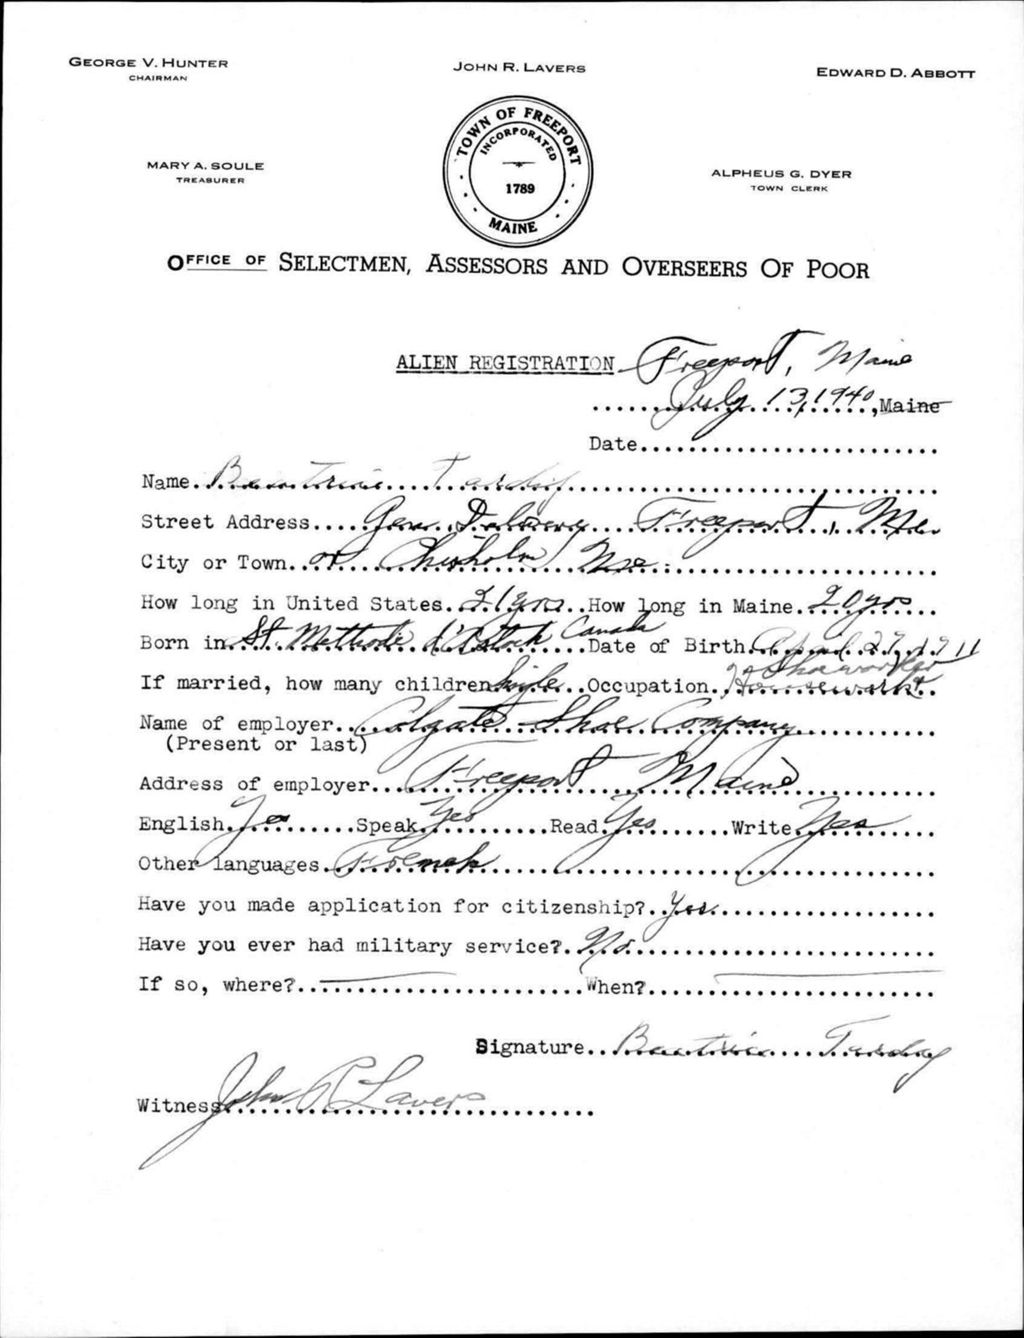 GEORGE V. HUNTER
CHAIRMAN
JOHN R. LAVERS
EDWARD D. ABBOTT
MARY A. SOULE
TREASURER
TOWN OF FREEPORT
INCORPORATED
1789
MAINE
ALPHEUS G. DYER
TOWN CLERK
OFFICE OF SELECTMEN, ASSESSORS AND OVERSEERS OF POOR
ALIEN REGISTRATION Freeport, Maine
July 13, 1940, Maine
Date
Name Beatrice Tardif
Street Address Gen. Delivery Freeport, Me.
City or Town or Chisholm, Me.
How long in United States 21 yrs How long in Maine 20 yrs
Born in St. Methode d' Canada Date of Birth April 27, 1911
Shoeworker
If married, how many children Single Occupation Housework
Name of employer Colgate Shoe Company
(Present or last)
Address of employer Freeport Maine
English Yes Speak Yes Read Yes Write Yes
Other languages French
Have you made application for citizenship? Yes.
Have you ever had military service? No.
If so, where? When?
Signature Beatrice
Witness John R Lavers